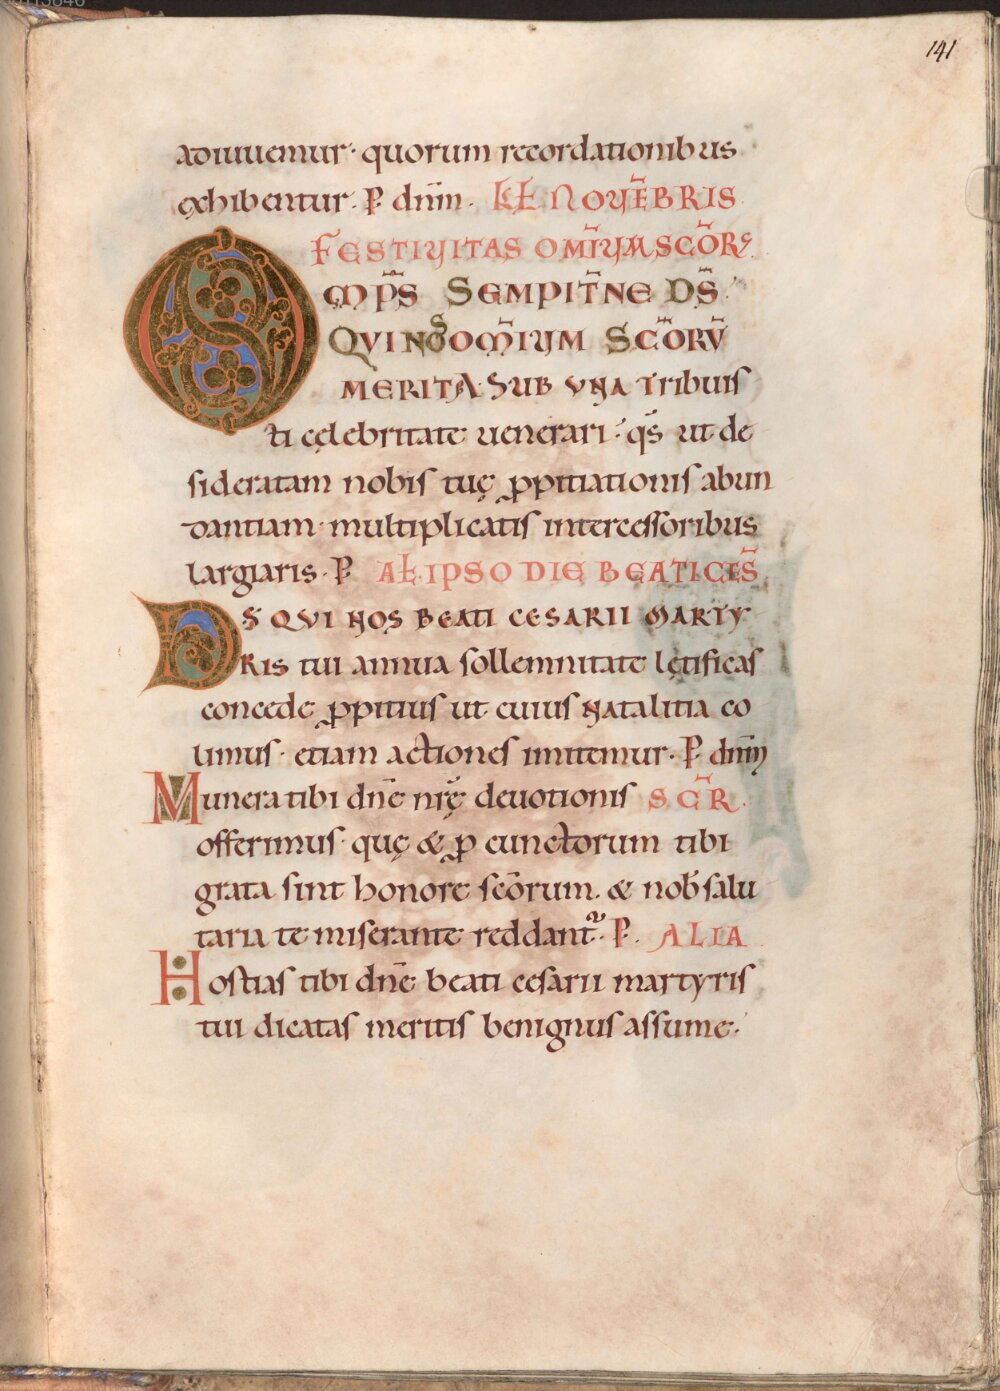 141
adiuuemur· quorum recordationibus
exhibentur· P̄ dnm̄. KL̄ NOVĒBRIS
FESTIVITAS OMIVM SCŌR
OMP̄S SEMPITNE DS̄
QVI NOS OM̄IUM SCŌRV̄
MERITA· SUB VNA Tribuis
ti cęlebritate uenerari· qs̄ ut de
sideratam nobis tuę ꝓpitiationis abun
dantiam· multiplicatis intercessoribus
largiaris· P̄ AL̄· IPSO DIE BEATI CES̄
DS QVI NOS BEATI CESARII MARTY
RIS tui annua sollemnitate lętificas
concede ꝓpitius ut cuius natalitia co
limus· etiam actiones imitemur· P̄ dnm̄
Munera tibi dnē nr̄ę deuotionis SC̄R
offerimus· quę & ꝓ cunctorum tibi
grata sint honore scōrum. & nob̄ salu
taria te miserante reddant᷑· P̄. ALIA
Hostias tibi dnē beati cesarii martyris
tui dicatas meritis benignus assume·